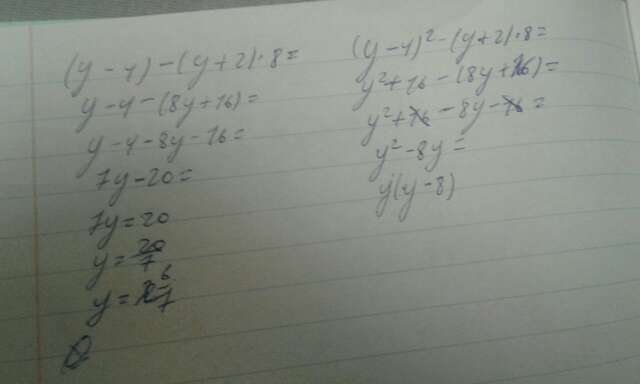 (y - 4) - (y + 2) · 8 =
y - 4 - (8y + 16) =
y - 4 - 8y - 16 =
7y - 20 =
7y = 20
y = 20/7
y = 2 6/7
(y - 4)² - (y + 2) · 8 =
y² + 16 - (8y + 16) =
y² + 16 - 8y - 16 =
y² - 8y =
y(y - 8)